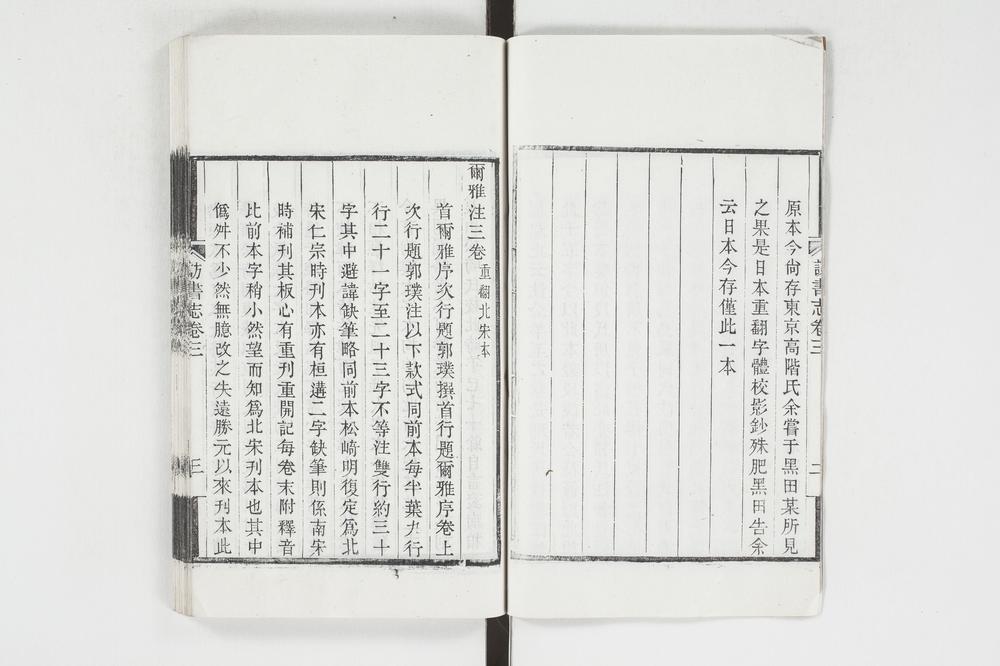 原本今尙存東京高階氏余嘗于黑田某所見
之果是日本重翻字體校影鈔殊肥黑田告余
云日本今存僅此一本
訪書志卷三
二
爾雅注三卷重翻北宋本
首爾雅序次行題郭璞撰首行題爾雅序卷上
次行題郭璞注以下款式同前本每半葉九行
行二十一字至二十三字不等注雙行約三十
字其中避諱缺筆略同前本松崎明復定爲北
宋仁宗時刊本亦有桓遘二字缺筆則係南宋
時補刊其板心有重刊重開記每卷末附釋音
比前本字稍小然望而知爲北宋刊本也其中
僞舛不少然無臆改之失遠勝元以來刊本此
訪書志卷三
三